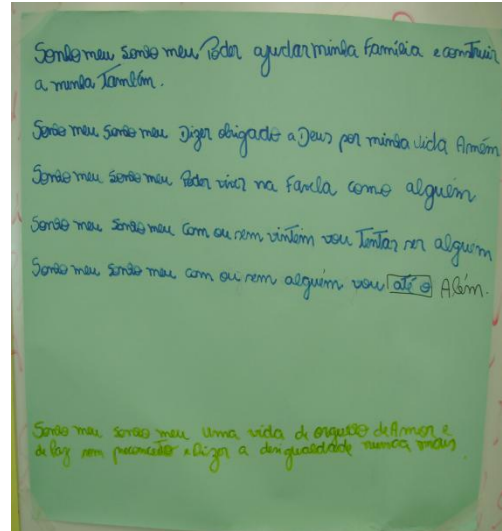 Sonho meu sonho meu Poder ajudar minha Família e construir
a minha Também.
Sonho meu Sonho meu Dizer obrigado a Deus por minha vida Amém
Sonho meu Sonho meu Poder viver na Favela como alguém
Sonho meu Sonho meu com ou sem vintém vou Tentar ser alguém
Sonho meu Sonho meu com ou sem alguém vou até o Além.
Sonho meu sonho meu uma vida de orgulho de Amor e
de Paz sem preconceito e Dizer a desigualdade nunca mais